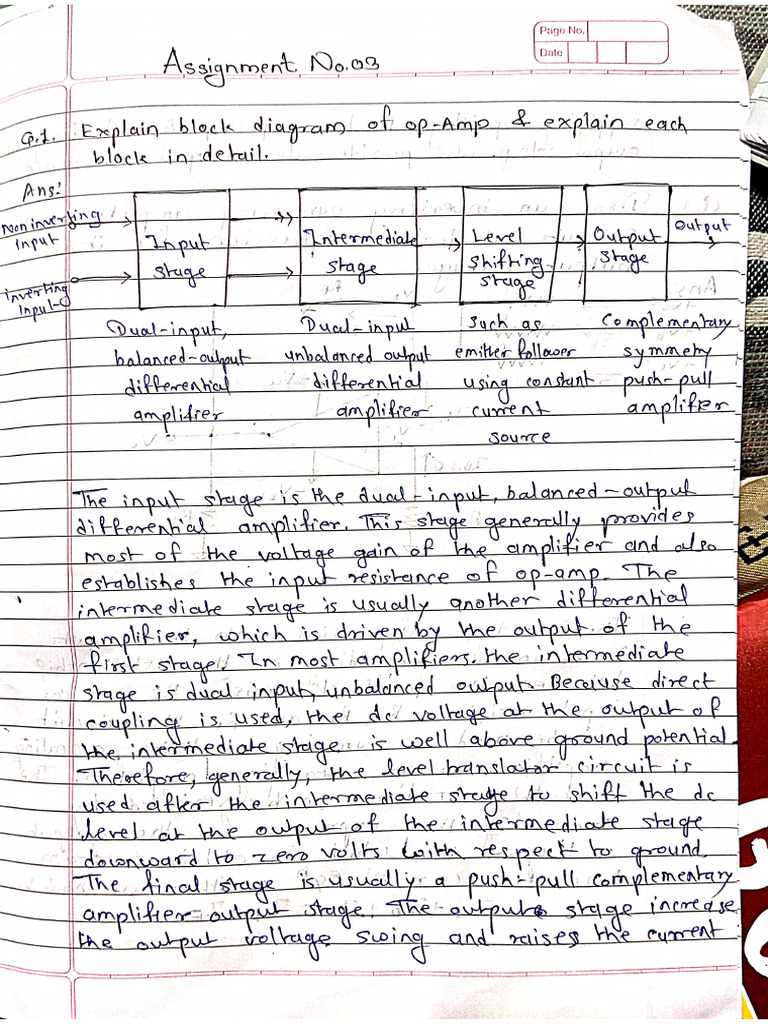 Page No.
Date
Assignment No.03
Q.1. Explain block diagram of op-Amp & explain each
block in detail.
Ans:
Non inverting
input
inverting
Input
Input
stage
Intermediate
stage
Level
shifting
stage
Output
stage
Output
Dual-input,
balanced-output
differential
amplifier
Dual-input
unbalanced output
differential
amplifier
Such as
emitter follower
using constant
current
source
Complementary
symmetry
push-pull
amplifier
The input stage is the dual-input, balanced-output
differential amplifier. This stage generally provides
most of the voltage gain of the amplifier and also
establishes the input resistance of op-amp. The
intermediate stage is usually another differential
amplifier, which is driven by the output of the
first stage. In most amplifiers. the intermediate
stage is dual input, unbalanced output. Because direct
coupling is used, the dc voltage at the output of
the intermediate stage is well above ground potential.
Therefore, generally, the level translator circuit is
used after the intermediate stage to shift the dc
level at the output of the intermediate stage
downward to zero volts with respect to ground.
The final stage is usually a push-pull complementary
amplifier output stage. The output stage increase
the output voltage swing and raises the current